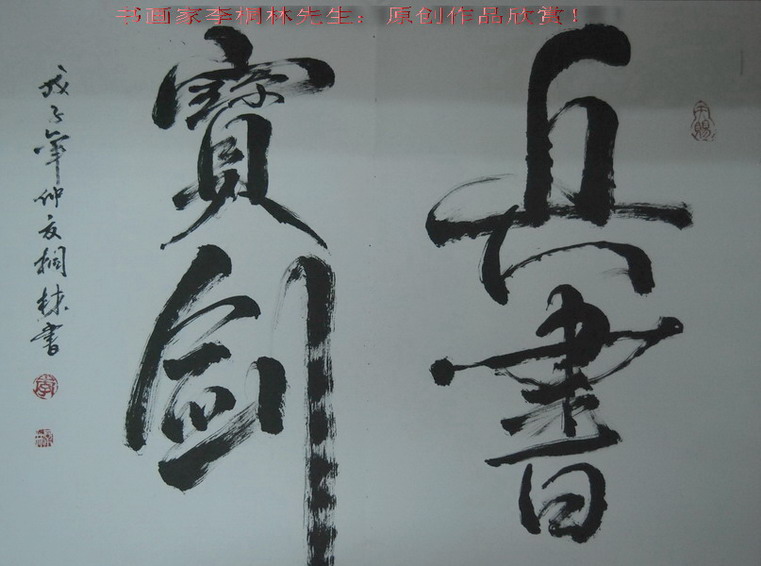 书画家李桐林先生：原创作品欣赏！
兵書
寶劍
戊子年仲友桐林書